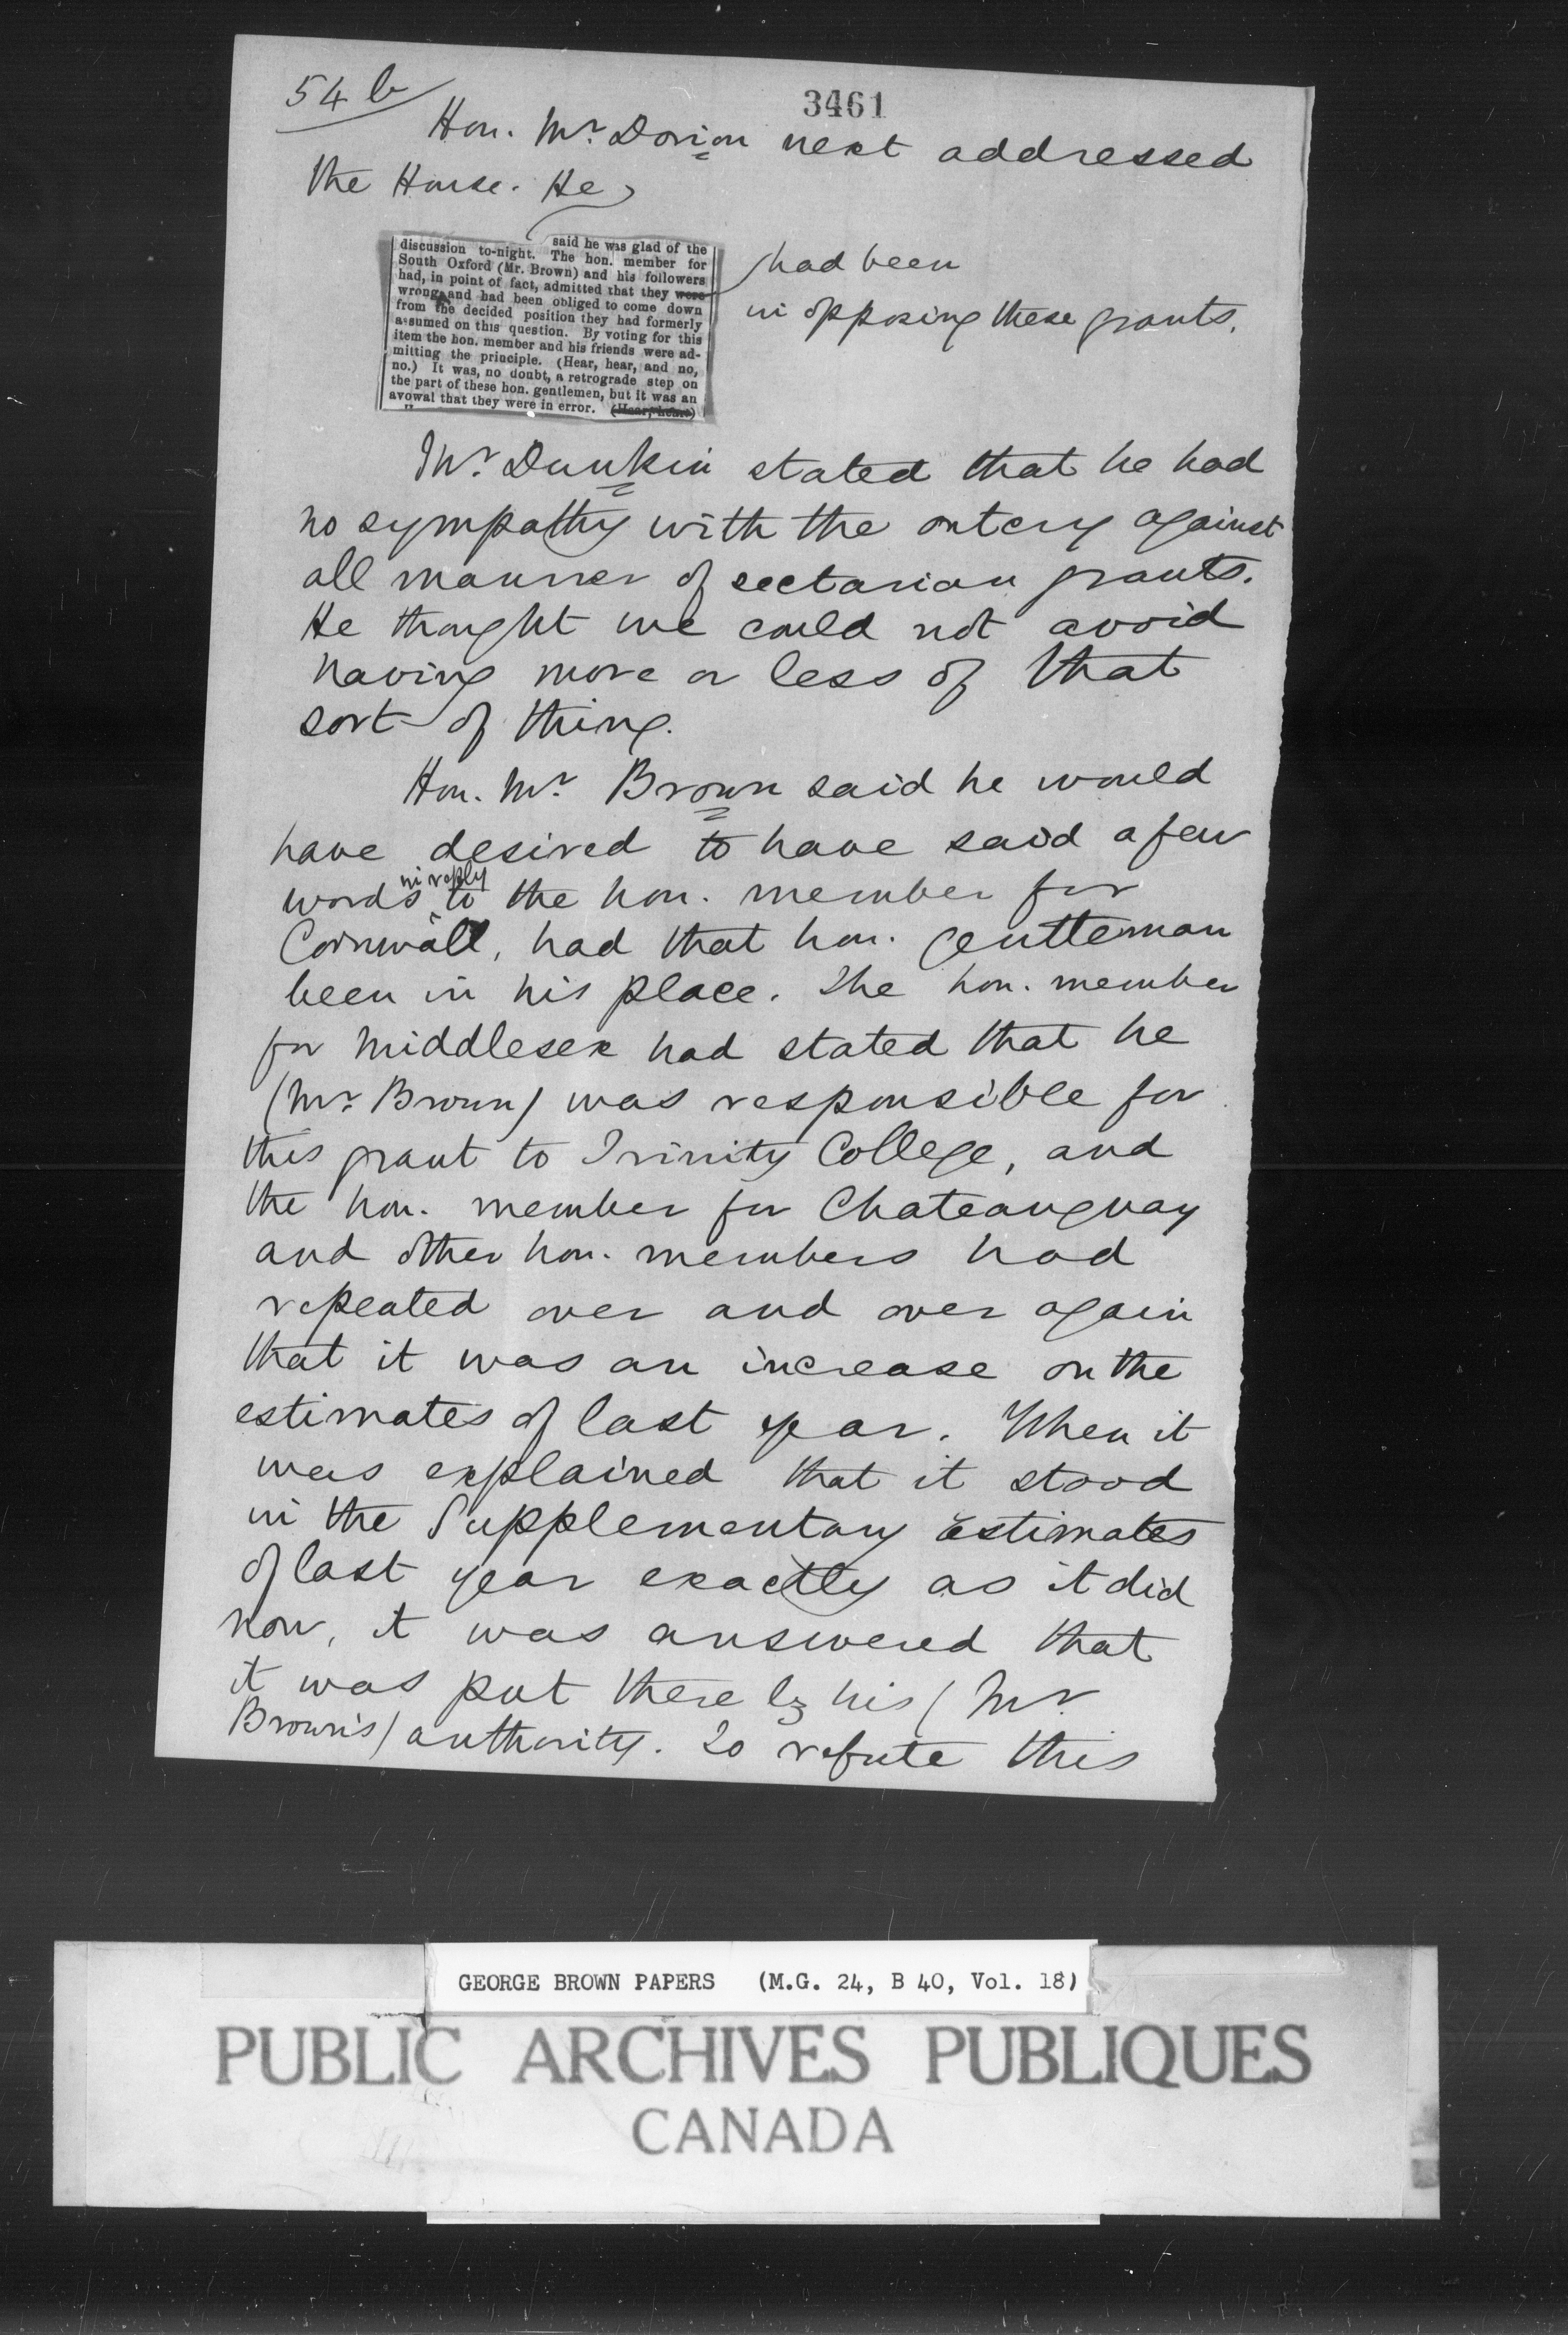 54 b
3461
Hon. Mr. Dorion next addressed
the House. He
said he was glad of the
discussion to-night. The hon. member for
South Oxford (Mr. Brown) and his followers
had, in point of fact, admitted that they were
had been
wrong and had been obliged to come down
in opposing these grants.
from the decided position they had formerly
assumed on this question. By voting for this
item the hon. member and his friends were ad-
mitting the principle. (Hear, hear, and no,
no.) It was, no doubt, a retrograde step on
the part of these hon. gentlemen, but it was an
avowal that they were in error. (Hear, hear)
Mr. Dunkin stated that he had
no sympathy with the outcry against
all manner of sectarian grants.
He thought we could not avoid
having more or less of that
sort of thing.
Hon. Mr. Brown said he would
have desired to have said a few
words in reply to the hon. member for
Cornwall, had that hon. gentleman
been in his place. The hon. member
for Middlesex had stated that he
(Mr. Brown) was responsible for
this grant to Trinity College, and
the hon. member for Chateauguay
and other hon. members had
repeated over and over again
that it was an increase on the
estimates of last year. When it
was explained that it stood
in the Supplementary Estimates
of last year exactly as it did
now, it was answered that
it was put there by his (Mr.
Brown's) authority. To refute this
GEORGE BROWN PAPERS (M.G. 24, B 40, Vol. 18)
PUBLIC ARCHIVES PUBLIQUES
CANADA